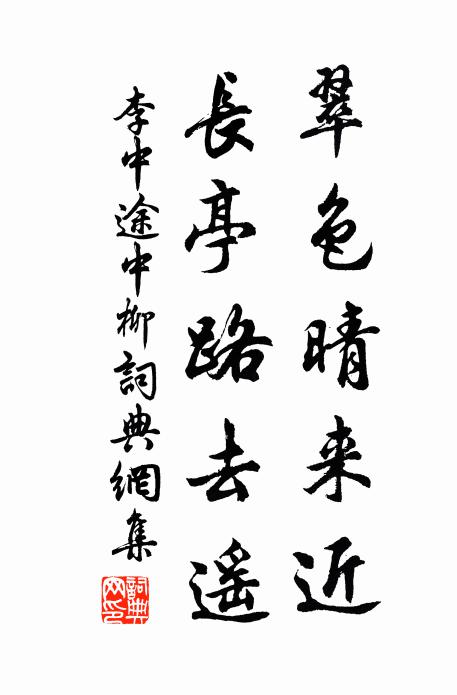 翠色晴来近
長亭路去遥
李中途中柳詞典網集
詞典網印